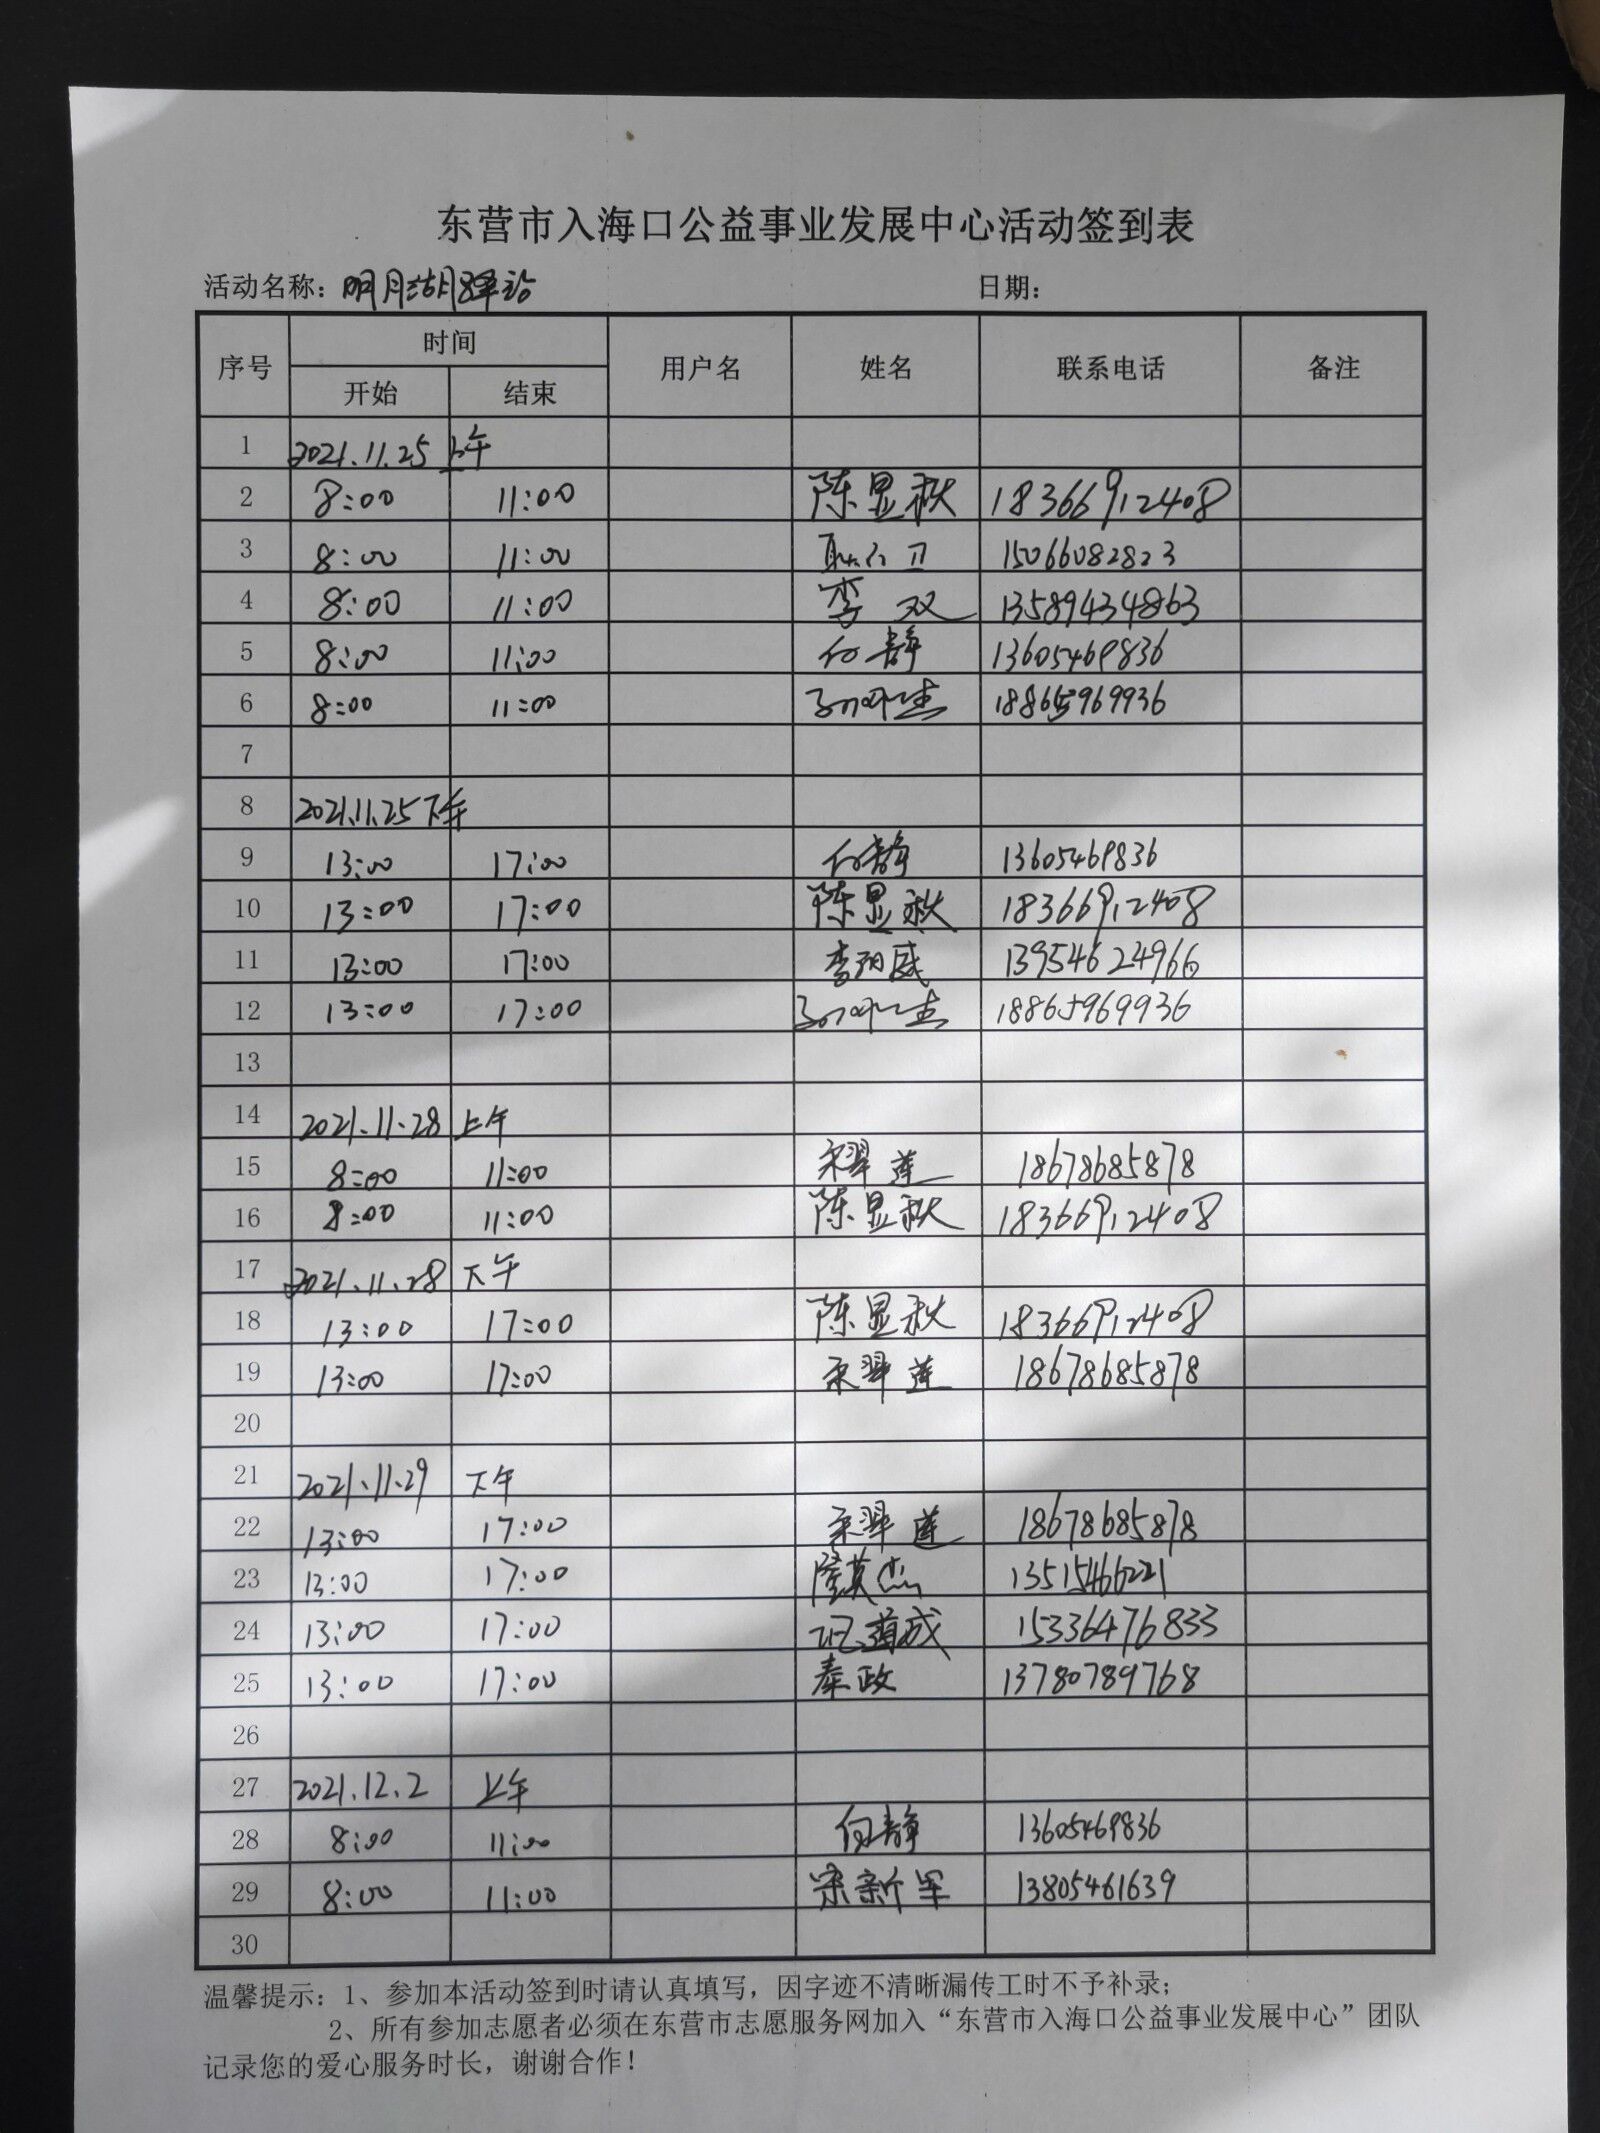 东营市入海口公益事业发展中心活动签到表
活动名称：明月湖驿站 日期：
序号 时间 用户名 姓名 联系电话 备注
开始 结束
1 2021.11.25 上午
2 8:00 11:00 陈显秋 18366912408
3 8:00 11:00 15066082823
4 8:00 11:00 李双 13589434863
5 8:00 11:00 付静 13605469836
6 8:00 11:00 18865969936
7
8 2021.11.25 下午
9 13:00 17:00 付静 13605469836
10 13:00 17:00 陈显秋 18366912408
11 13:00 17:00 李 威 13954624966
12 13:00 17:00 18865969936
13
14 2021.11.28 上午
15 8:00 11:00 宋翠莲 18678685878
16 8:00 11:00 陈显秋 18366912408
17 2021.11.28 下午
18 13:00 17:00 陈显秋 18366912408
19 13:00 17:00 宋翠莲 18678685878
20
21 2021.11.29 下午
22 13:00 17:00 宋翠莲 18678685878
23 13:00 17:00 13515466221
24 13:00 17:00 15336476833
25 13:00 17:00 秦政 13780789768
26
27 2021.12.2 上午
28 8:00 11:00 付静 13605469836
29 8:00 11:00 宋新军 13805461639
30
温馨提示：1、参加本活动签到时请认真填写，因字迹不清晰漏传工时不予补录；
2、所有参加志愿者必须在东营市志愿服务网加入“东营市入海口公益事业发展中心”团队
记录您的爱心服务时长，谢谢合作！